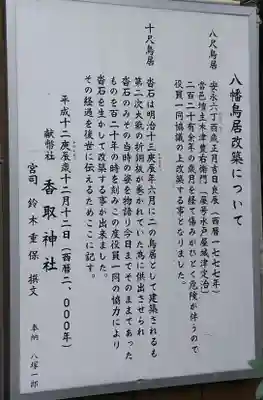 八幡鳥居改築について
八尺鳥居
安永六丁酉歳正月吉日良辰(西暦一七七七年)
當邑塙主木津豊右衛門(屋号水戸屋城津定治)
二百二十有余年の歳月を経て傷みがひどく危険が伴うので
役員一同協議の上改築する事となりました。
十尺鳥居
沓石は明治十三庚辰年六月に二の鳥居として建築されるも
第二次大戦の折銅板が巻かれていた為に供出させられ
沓石のみその当時の姿を物語り今日までそのままであった
ものを百二十年の時を刻みこの度役員一同の協力により
沓石を生かして改築する事が出来ました。
その経過を後世に伝えるためここに記す。
平成十二庚辰歳十二月十二日(西暦二、〇〇〇年)
献幣社 香取神社
宮司 鈴木重保 撰文
奉納 八塚一郎